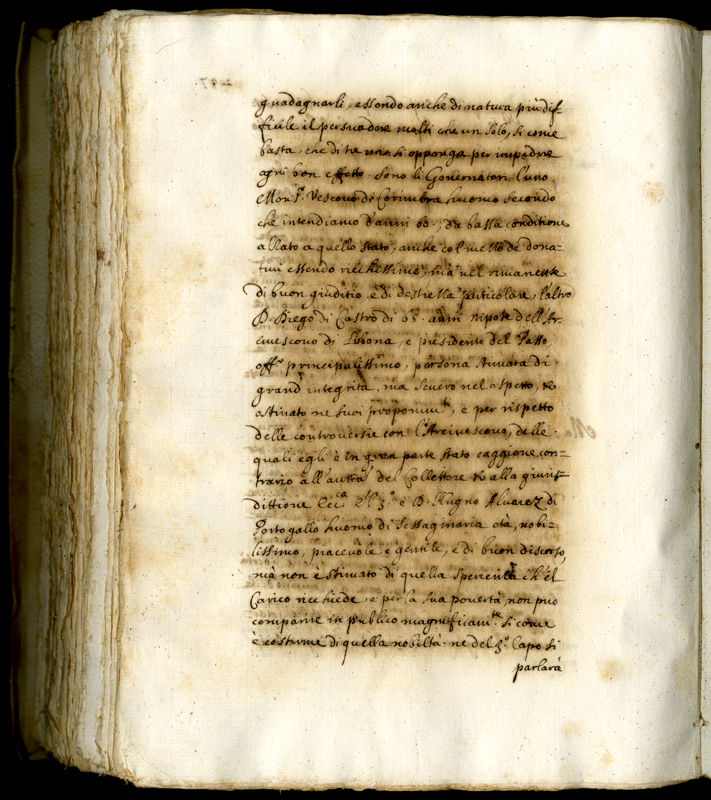 guadagnarli, essendo anche di natura più dif-
ficile il persuadere molti che un solo, si come
basta, che di tre uno si opponga per impedire
ogni bon effetto. sono li Governatori, l'uno
Mons.r Vescovo di Coimbra huomo secondo
che intendiamo d'anni 60., da bassa conditione
alzato a quello stato, anche col mezzo de dona-
tivi essendo ricchissimo, mà nel rimanente
di buon giuditio, e di destrezza particolare, l'altro
D. Diego di Castro di 65. anni nipote dell'Ar-
civescovo di Lisbona, e presidente del Passo,
off.o principalissimo, persona stimata di
grand'integrità, ma severo nel aspetto, &
ostinato ne suoi proponim.ti, e per rispetto
delle controversie con l'Arcivescovo, delle
quali egli è in gran parte stato caggione con-
trario all'autt.à del Collettore & alla giuris-
dittione Ecc.ca El 3.o è D. Hugno Alvarez di
Portogallo huomo di sessaginaria età, nobi-
lissimo, piacevole e gentile, e di buon discorso,
mà non è stimato di quella sperienza ch'el
Carico richiede, e per la sua povertà non può
comparire in publico magnificam.te si come
è costume di quella nobiltà. ne del 3.o Capo si
parlarà